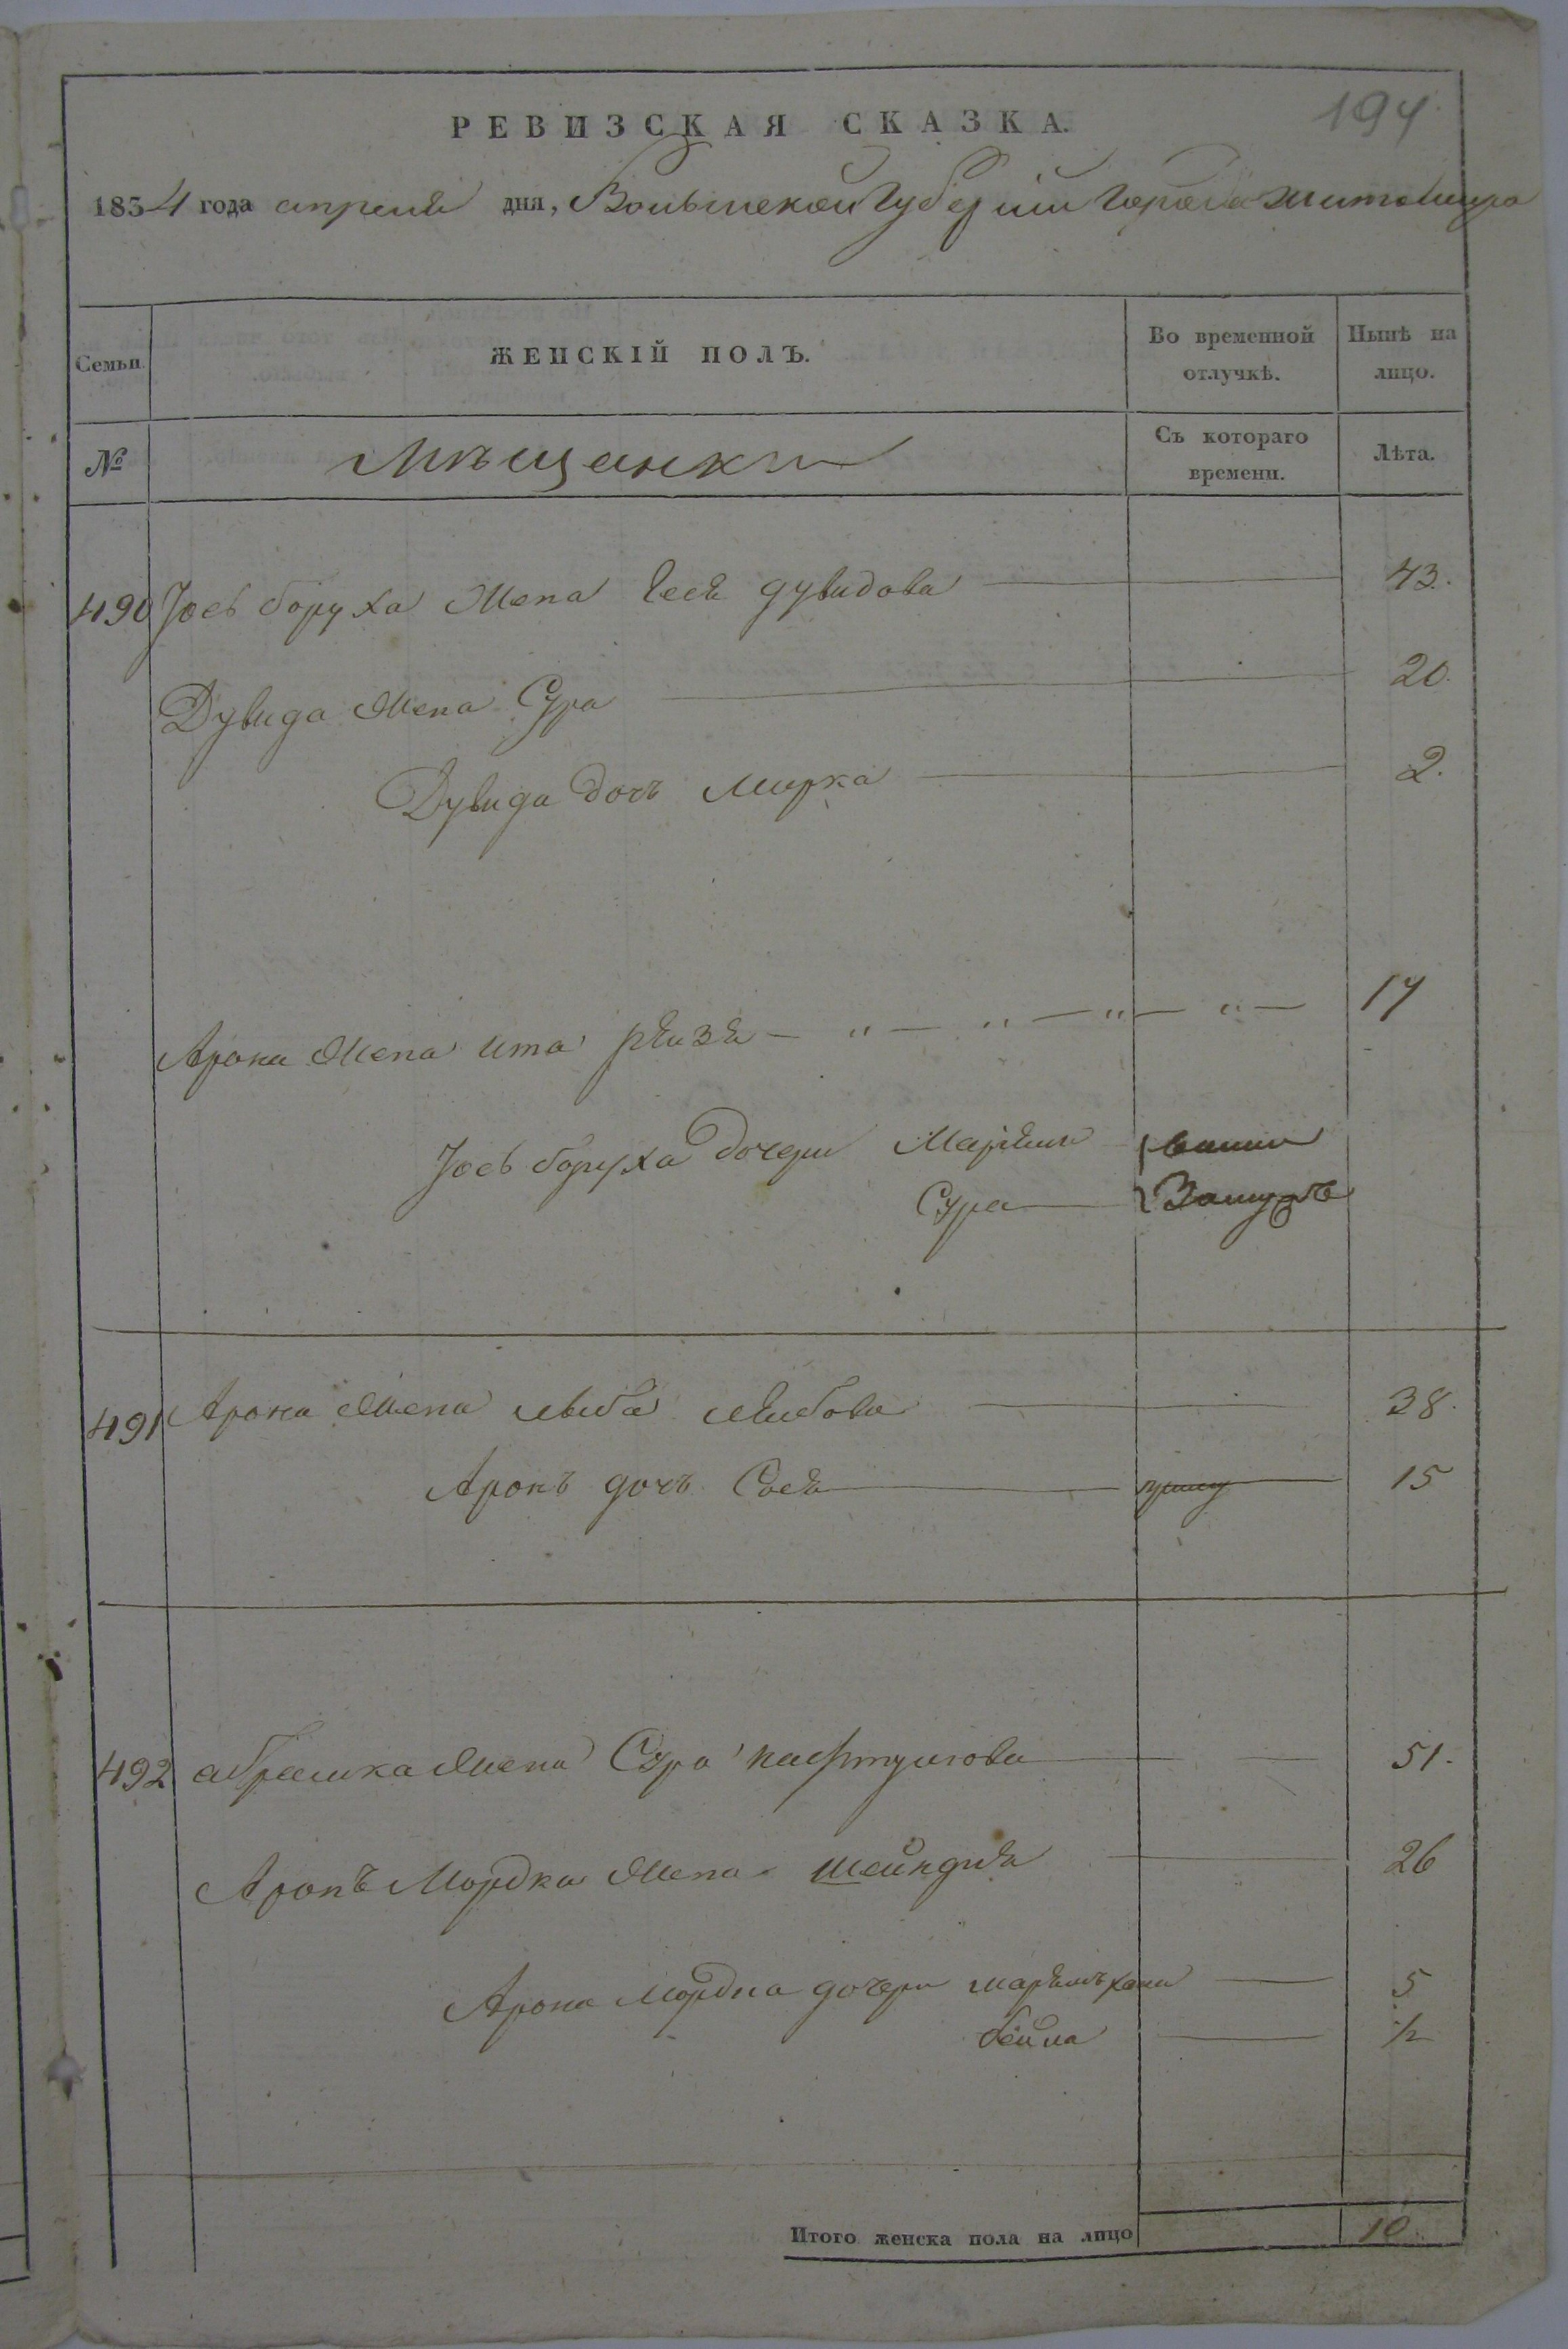 194
РЕВИЗСКАЯ СКАЗКА.
1834 года апреля дня, Волынской Губернии города Житомира
Семьи. ЖЕНСКІЙ ПОЛЪ. Во временной отлучкѣ. Нынѣ на лицо.
№ Мѣщанки Съ котораго времени. Лѣта.
490 Іось боруха Жена Еся дувидова 43.
Дувида Жена Сура 20.
Дувида дочь мирка 2.
Арона Жена ита рейзя — „ — „ — „ — „ — 17
Іось боруха дочери Марьям
Сура Замужъ
491 Арона Жена лыба лейбова 38.
Аронъ дочь Сося 15
492 абрамка Жена Сура нафтулова 51.
Аронъ Мордка Жена шейндля 26
Арона Мордка дочери марьямъ хана 5
бейла 1/2
Итого женска пола на лицо 10